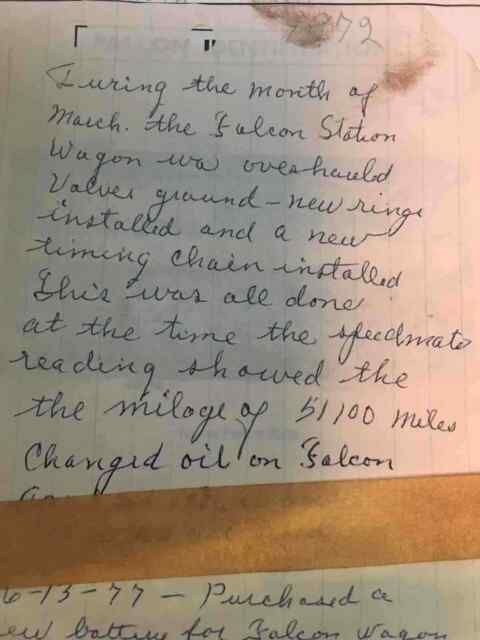 1972
During the month of
March. the Falcon Station
Wagon was overhauled
Valves ground - new rings
installed and a new
timing chain installed
This was all done
at the time the speedmate
reading showed the
the milage of 51100 miles
Changed oil on Falcon
6-13-77 - Purchased a
new battery for Falcon Wagon